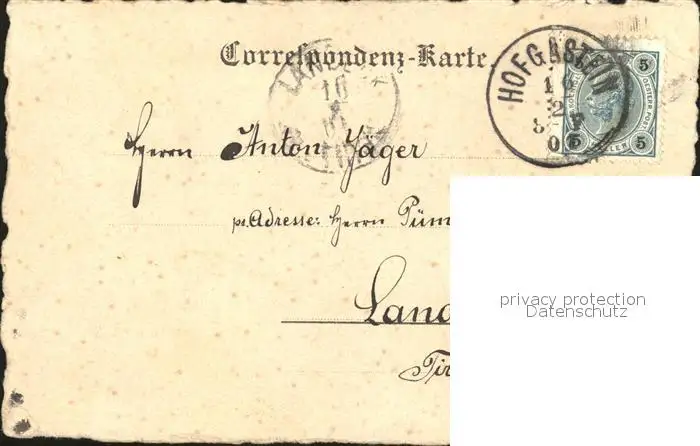 Correspondenz-Karte.
HOFGASTEIN
5 5
5 5
10
Herrn Anton Jäger
pr. Adresse: Herrn Püm
Land
Tir
privacy protection
Datenschutz